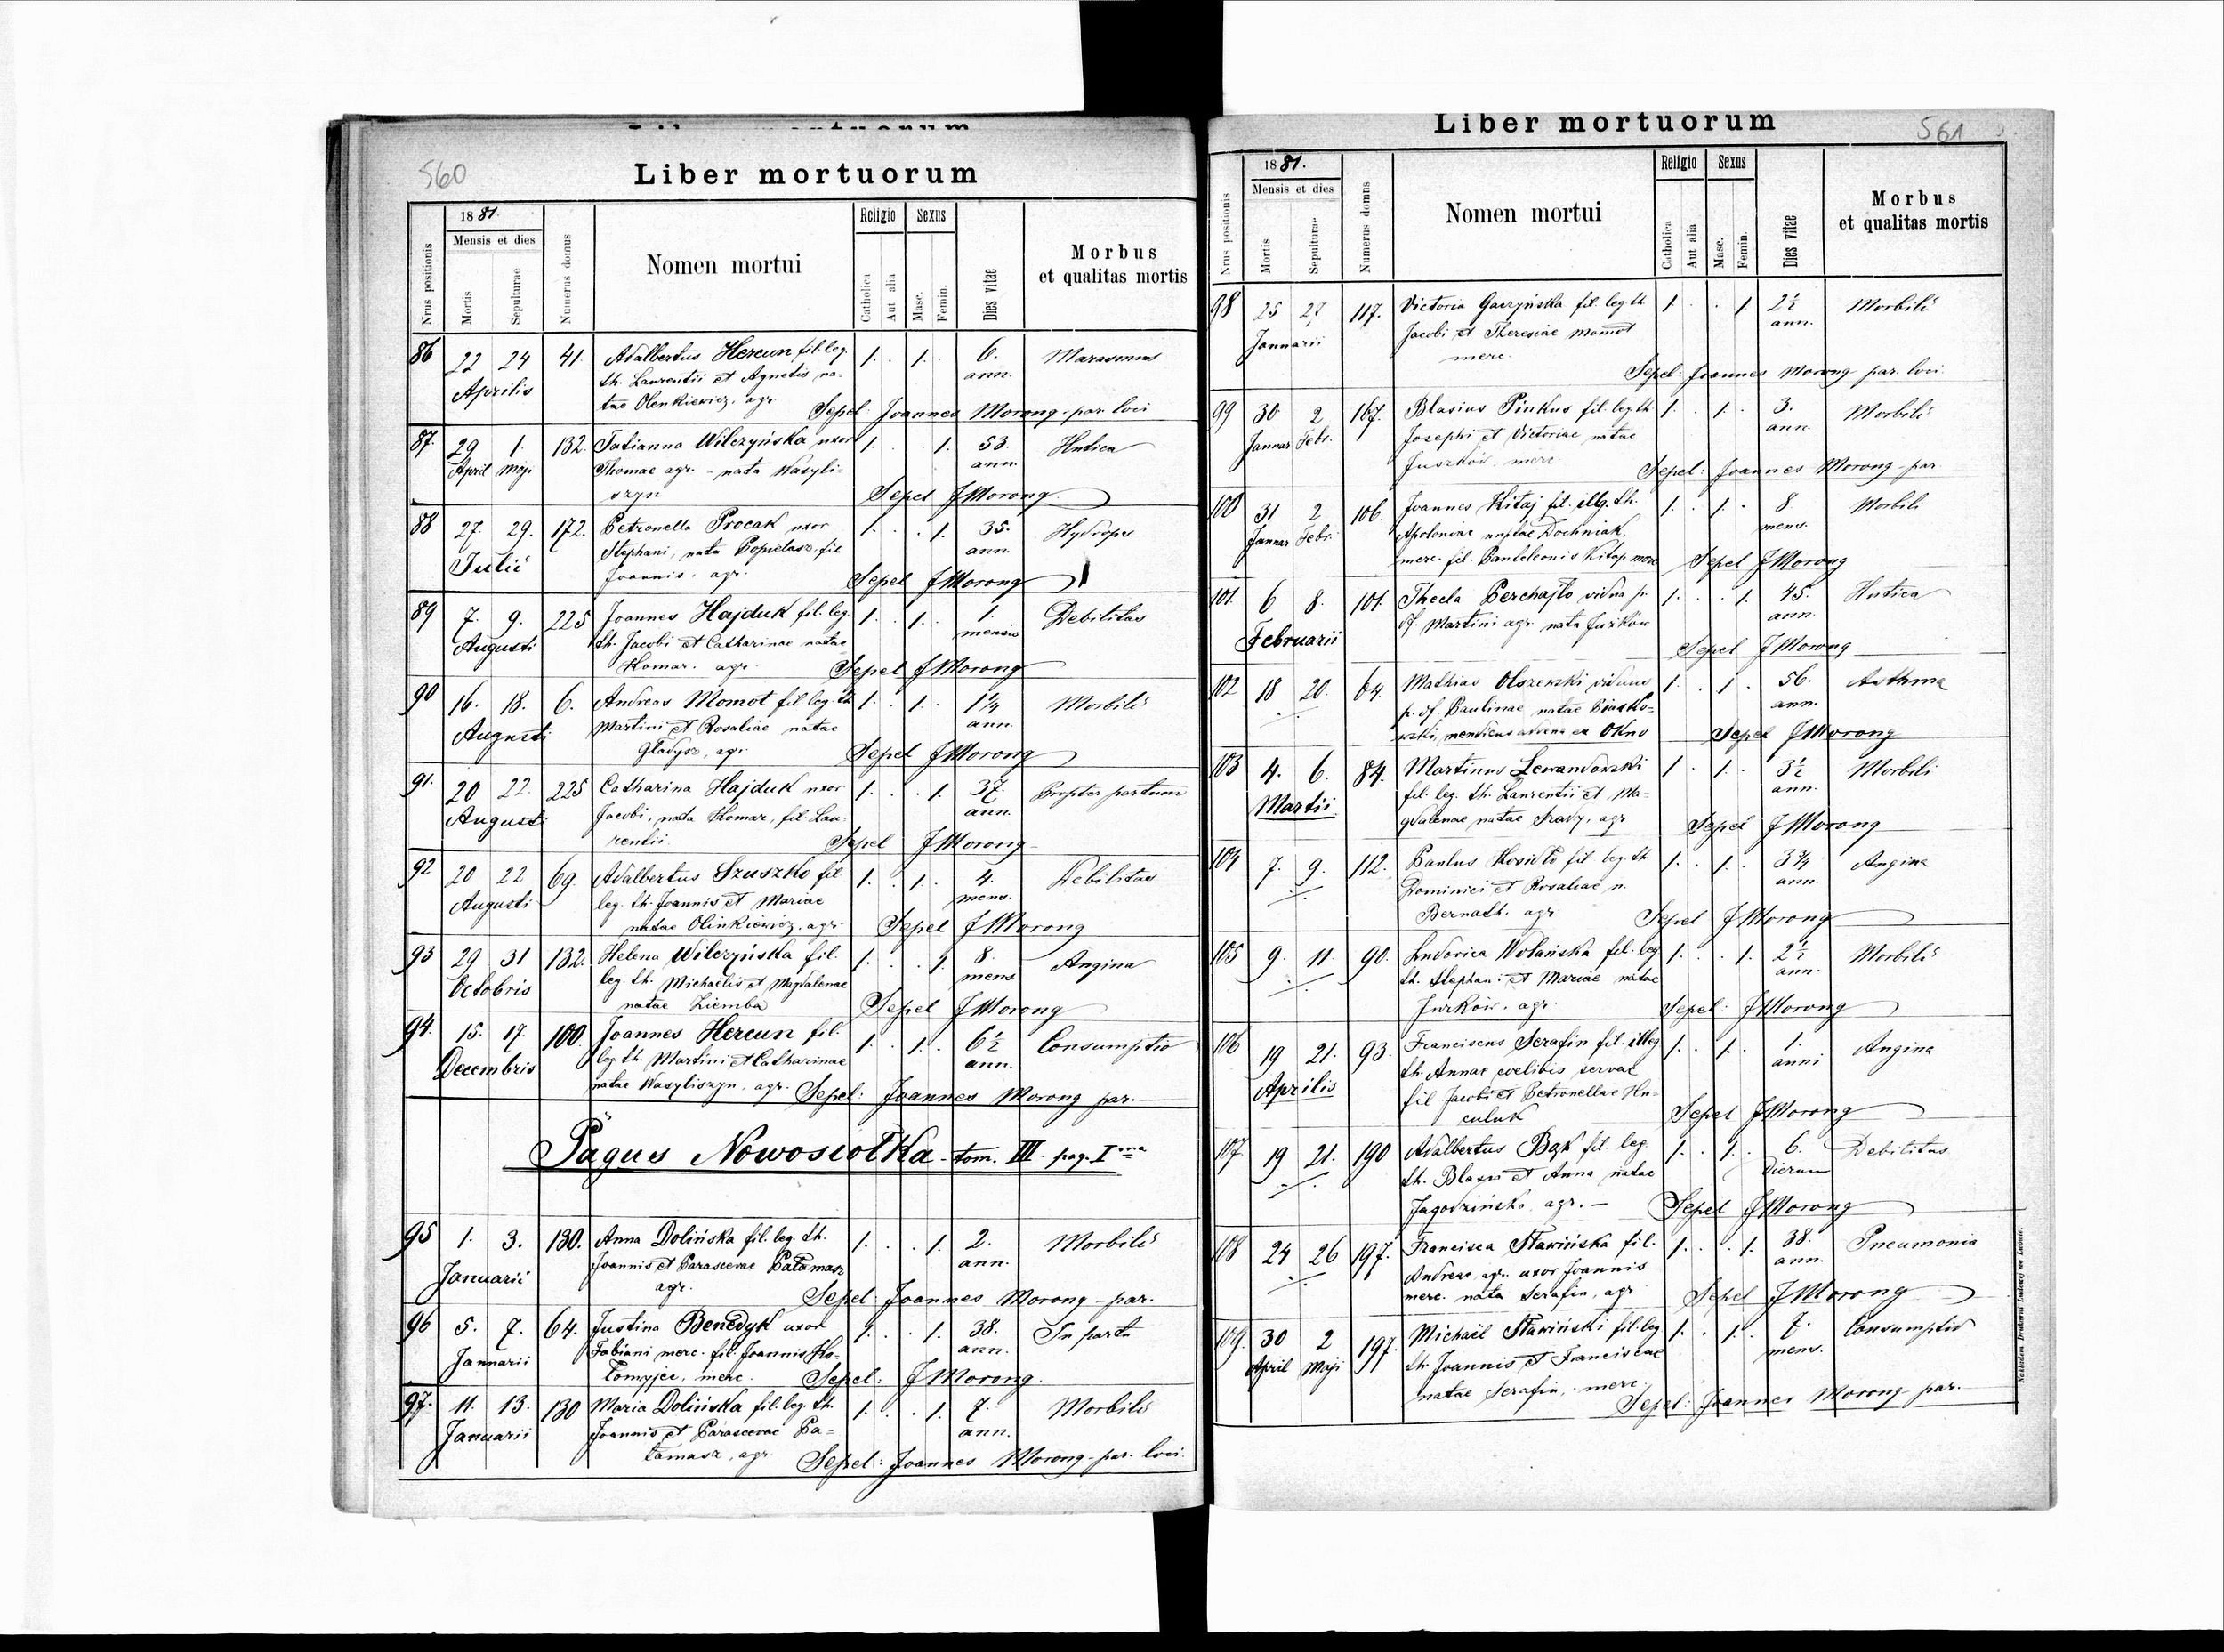 560
Liber mortuorum
Nrus positionis
1881.
Mensis et dies
Mortis
Sepulturae
Numerus domus
Nomen mortui
Religio
Catholica
Aut alia
Sexus
Masc.
Femin.
Dies vitae
Morbus
et qualitas mortis
86 22 24 41. Adalbertus Hercun fil. leg. 1. . 1. . 6. Marasmus
Aprilis th. Laurentii et Agnetis na= ann.
tae Olenkiewicz, agr. Sepel Joannes Morong - par. loci
87. 29 1. 132. Tatianna Wilczyńska uxor 1. . . 1. 53. Hectica
April Maji Thomae agr. - nata Wasyli= ann.
szyn Sepel JMorong
88 27. 29. 172. Petronella Procak uxor 1. . . 1. 35. Hydrops
Julii Stephani, nata Popielasz, fil ann.
Joannis, agr. Sepel JMorong
89 7. 9. 225 Joannes Hajduk fil. leg. 1. . 1. . 1. Debilitas
Augusti th. Jacobi et Catharinae natae mensis
Homar. agr. Sepel JMorong
90 16. 18. 6. Andreas Momot fil leg. th 1. . 1. . 1¼ Morbili
Augusti Martini et Rosaliae natae ann.
Gładysz, agr. Sepel JMorong
91. 20 22. 225 Catharina Hajduk uxor 1. . . 1. 37. Propter partum
Augusti Jacobi, nata Homar, fil. Lau= ann.
rentii. Sepel JMorong
92 20 22 69. Adalbertus Szuszko fil 1. . 1. . 4. Debilitas
Augusti leg. th. Joannis et Mariae mens.
natae Olinkiewicz, agr. Sepel JMorong
93 29 31 132. Helena Wilczyńska fil. 1. . . 1. 8. Angina
Octobris leg. th. Michaelis et Magdalenae mens.
natae Ziemba Sepel JMorong
94. 15. 17. 100. Joannes Hercun fil. 1. . 1. . 6½ Consumptio
Decembris leg. th. Martini et Catharinae ann.
natae Wasyliszyn, agr. Sepel: Joannes Morong par.
Pagus Nowosiołka - tom. III. pag. Ima
95 1. 3. 130. Anna Dolińska fil. leg. th. 1. . . 1. 2. Morbili
Januarii Joannis et Parascevae Pałamasz ann.
agr. Sepel: Joannes Morong - par.
96 5. 7. 64. Justina Benedyk uxor 1. . . 1. 38. In partu
Januarii Fabiani merc. fil. Joannis Ko= ann.
łomyjec, merc. Sepel: JMorong.
97. 11. 13. 130 Maria Dolińska fil. leg. th. 1. . . 1. 7. Morbili
Januarii Joannis et Parascevae Pa= ann.
łamasz, agr. Sepel: Joannes Morong - par. loci.
561
Liber mortuorum
Nrus positionis
1881.
Mensis et dies
Mortis
Sepulturae
Numerus domus
Nomen mortui
Religio
Catholica
Aut alia
Sexus
Masc.
Femin.
Dies vitae
Morbus
et qualitas mortis
98 25 27 117. Victoria Gaczyńska fil. leg. th. 1. . . 1. 2½ Morbili
Januarii Jacobi et Theresiae Momot ann.
merc.
Sepel: Joannes Morong - par. loci.
99 30 2 167. Blasius Pinkus fil. leg. th. 1. . 1. . 3. Morbili
Januar Febr. Josephi et Victoriae natae ann.
Juszków, merc. Sepel: Joannes Morong - par
100 31 2 106. Joannes Kitaj fil. illeg. th. 1. . 1. . 8 Morbili
Januar Febr. Apoloniae nuptae Dochniak, mens.
merc. fil. Panteleonis Kitaj merc Sepel JMorong
101. 6 8. 101. Thecla Perchajło vidua p. 1. . . 1. 45. Hectica
Februarii df. Martini agr. nata Jurków ann.
Sepel JMorong
102 18 20. 64. Mathias Olszewski viduus 1. . 1. . 56. Asthma
p. df. Paulinae natae ann.
mendicus advena ex Okno Sepel JMorong
103 4. 6. 84. Martinus Lewandowski 1. . 1. . 3½ Morbili
Martii. fil. leg. th. Laurentii et Ma= ann.
gdalenae natae agr Sepel JMorong
104 7. 9. 112. Paulus fil leg. th 1. . 1. . 3¾ Angina
Dominici et Rosaliae n. ann.
Bernath. agr. Sepel JMorong
105 9. 11. 90. Ludovica Wolańska fil. leg 1. . . 1. 2½ Morbili
th. Stephani et Mariae natae ann.
Jurków. agr. Sepel: JMorong
106 19 21. 93. Franciscus Serafin fil. illeg 1. . 1. . 1. Angina
Aprilis th. Annae coelibis servae anni
fil Jacobi et Petronellae Hu=
culuk Sepel JMorong
107. 19 21. 190 Adalbertus Bąk fil. leg. 1. . 1. . 6. Debilitas
th. Blasii et Anna natae dierum
Jagodzińska, agr. - Sepel JMorong
108 24 26 197. Francisca Stawińska fil. 1. . . 1. 38. Pneumonia
Andreae agr. uxor Joannis ann.
merc. nata Serafin, agr Sepel JMorong
109. 30 2 197. Michaël Stawiński fil. leg 1. . 1. . 7. Consumptio
April Maji th. Joannis et Franciscae mens.
natae Serafin, merc. Sepel: Joannes Morong par.
Nakładem Drukarni Ludowej we Lwowie.